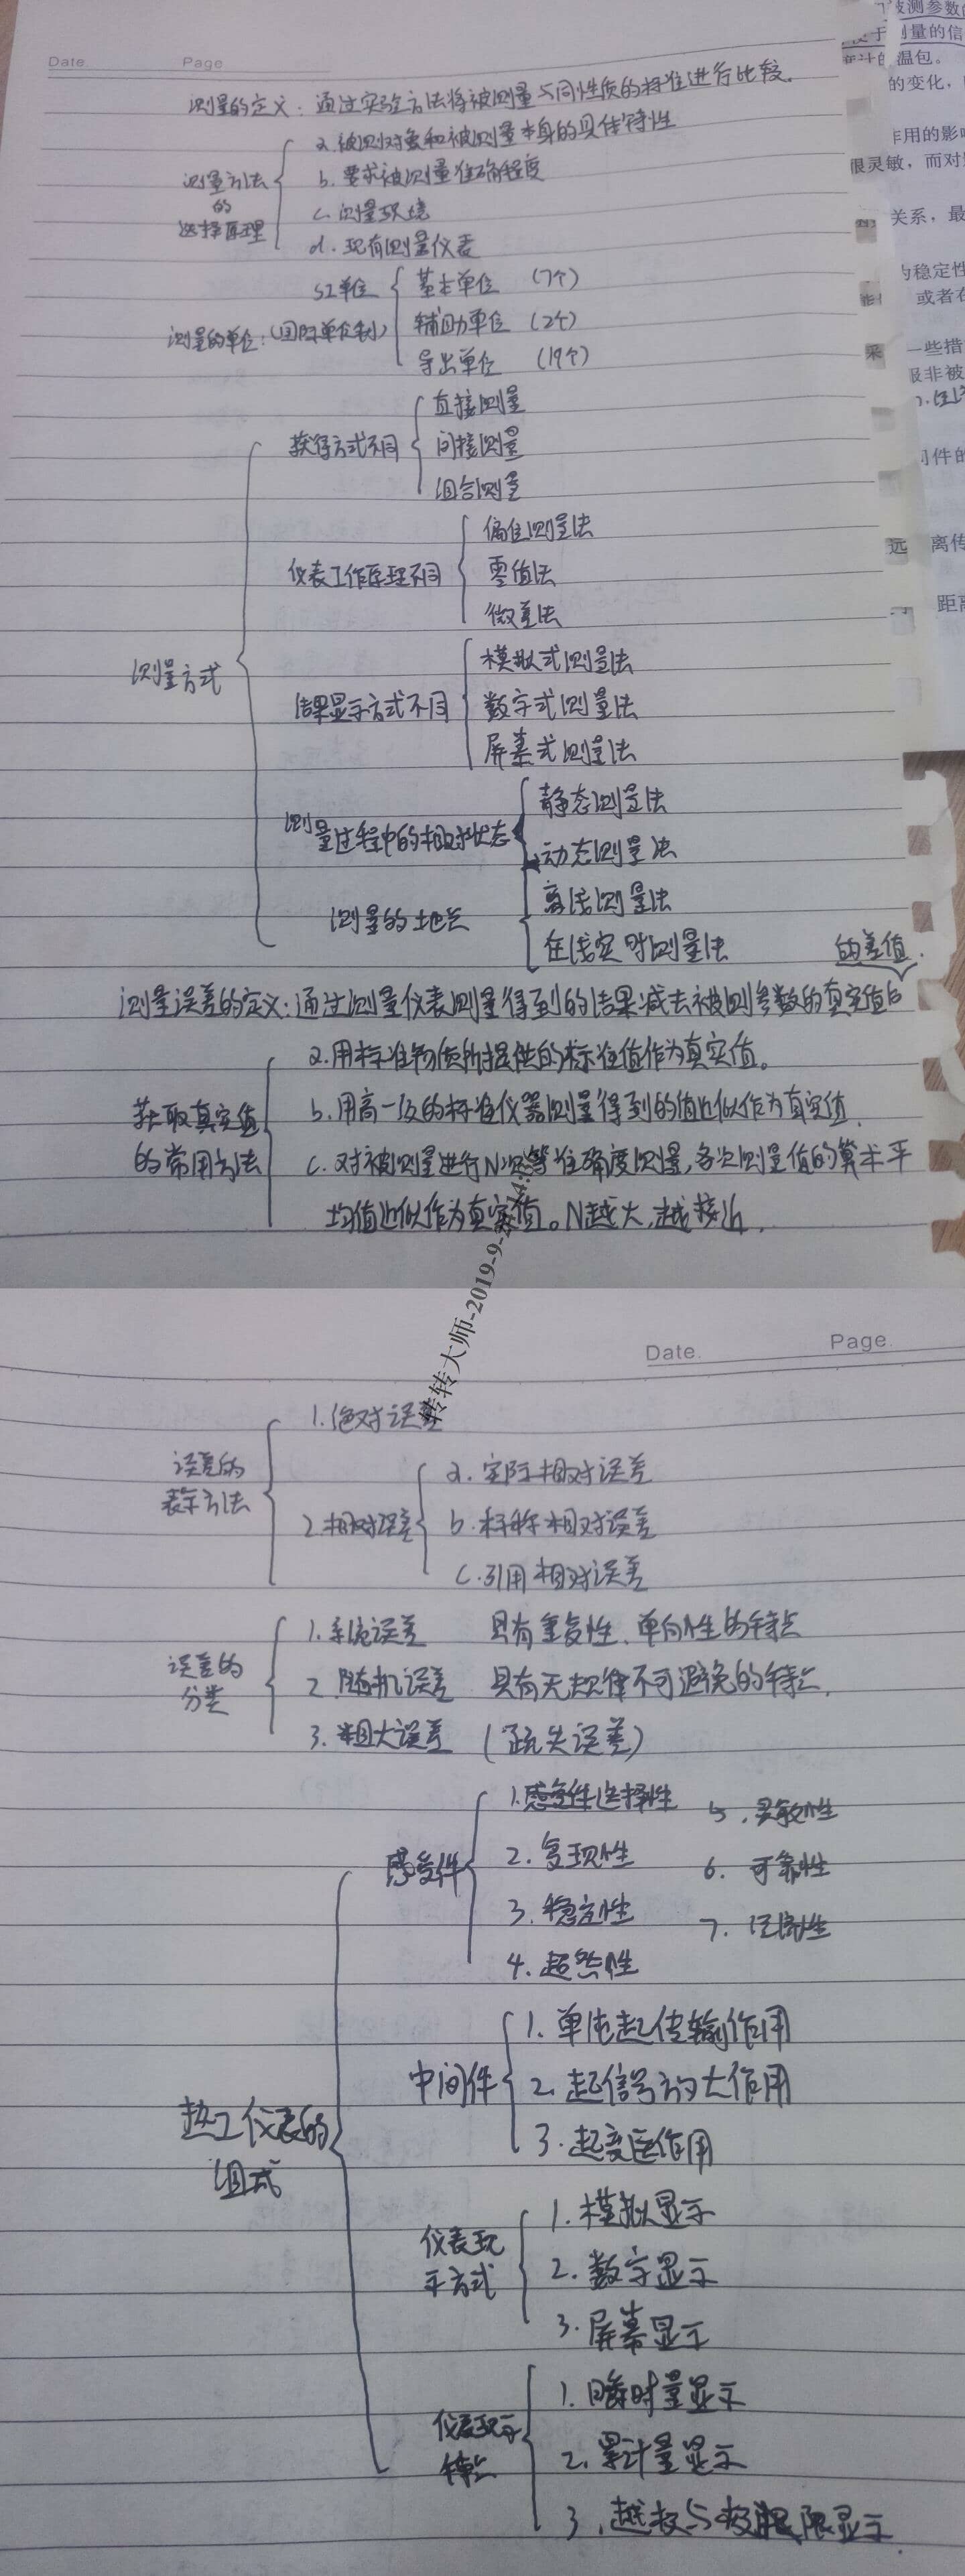 Date Page
测量的定义：通过实验方法将被测量与同性质的标准进行比较.
测量方法的选择原理
a.被测对象和被测量本身的具体特性
b.要求被测量准确程度
c.测量环境
d.现有测量仪表
测量的单位:(国际单位制)
SI单位
基本单位 (7个)
辅助单位 (2个)
导出单位 (19个)
测量方式
获得方式不同
直接测量
间接测量
组合测量
仪表工作原理不同
偏位测量法
零值法
微差法
结果显示方式不同
模拟式测量法
数字式测量法
屏幕式测量法
测量过程中的相对状态
静态测量法
动态测量法
测量的地点
离线测量法
在线实时测量法
测量误差的定义:通过测量仪表测量得到的结果减去被测参数的真实值的差值.
获取真实值的常用方法
a.用标准物质所提供的标准值作为真实值。
b.用高一级的标准仪器测量得到的值近似作为真实值.
c.对被测量进行N次等准确度测量,各次测量值的算术平
均值近似作为真实值。N越大,越接近.
转转大师-2019-9-
Date. Page.
误差的表示方法
1.绝对误差
2.相对误差
a.实际相对误差
b.标称相对误差
c.引用相对误差
误差的分类
1.系统误差 具有重复性、单向性的特点
2.随机误差 具有无规律不可避免的特点.
3.粗大误差 (疏失误差)
热工仪表的组式
感受件
1.感受件选择性 5.灵敏性
2.复现性 6.可靠性
3.稳定性 7.经济性
4.超然性
中间件
1.单使起传输作用
2.起信号放大作用
3.起变送作用
仪表现示方式
1.模拟显示
2.数字显示
3.屏幕显示
仪表现示特点
1.瞬时量显示
2.累计量显示
3.越权与极限显示
被测参数
测量的信
温包。
的变化，
作用的影
很灵敏，而对
关系，最
的稳定性
或者在
采
一些措
服非被
件的
远
离传
距离